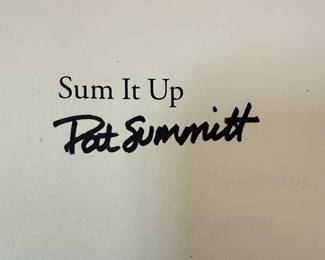 Sum It Up
Pat Summitt